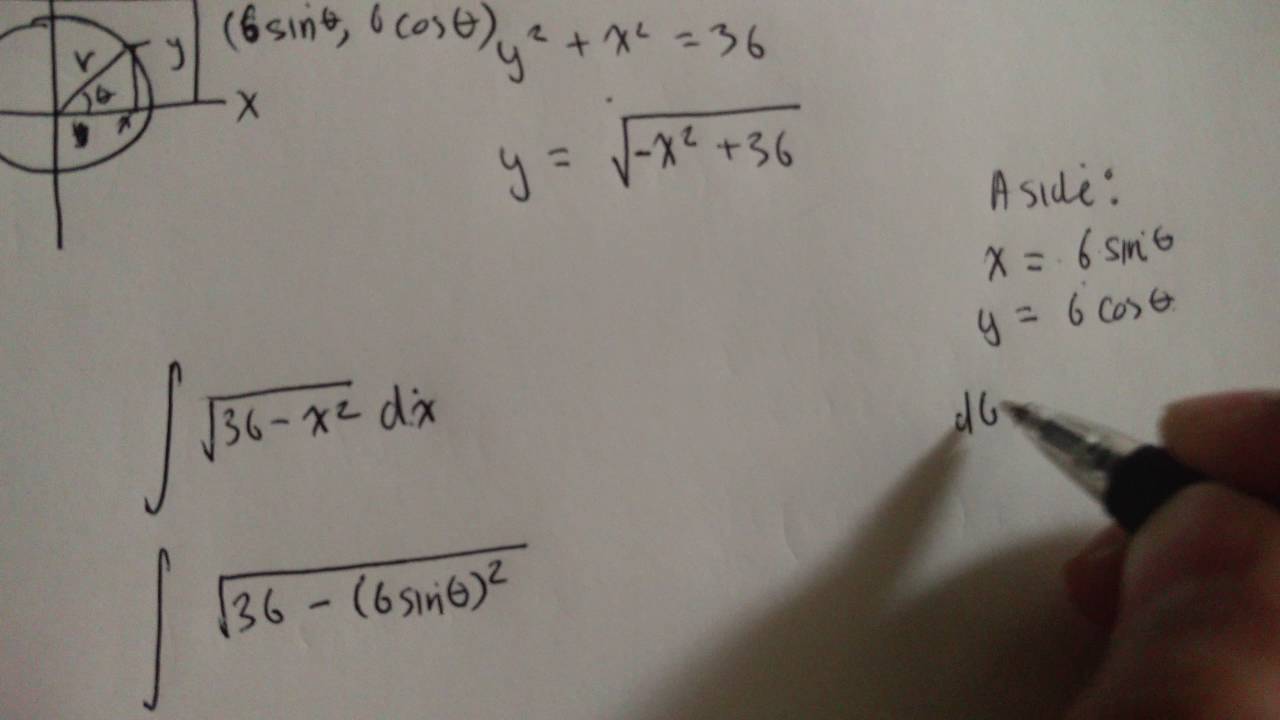 (6 sinθ, 6 cosθ)
y² + x² = 36
r
y
θ
x
X
y = √(-x² + 36)
Aside:
x = 6 sinθ
y = 6 cosθ
∫ √(36 - x²) dx
dθ
∫ √(36 - (6 sinθ)²)